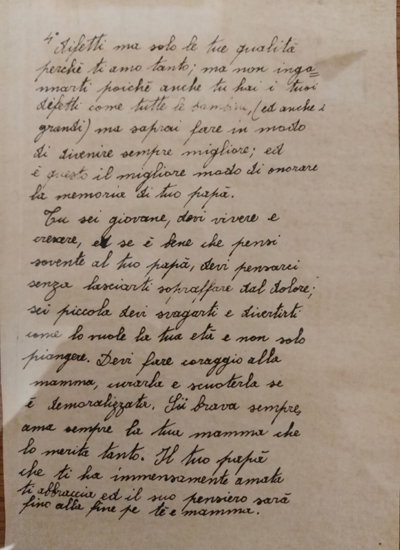 4° difetti ma solo le tue qualità
perchè ti amo tanto; ma non inga=
nnarti poichè anche tu hai i tuoi
difetti come tutte le bambine, (ed anche i
grandi) ma saprai fare in modo
di divenire sempre migliore; ed
è questo il migliore modo di onorare
la memoria di tuo papà.
Tu sei giovane, devi vivere e
crescere, ed se è bene che pensi
sovente al tuo papà, devi pensarci
senza lasciarti sopraffare dal dolore;
sei piccola devi svagarti e divertirti
come lo vuole la tua età e non solo
piangere. Devi fare coraggio alla
mamma, curarla e scuoterla se
è demoralizzata. Sii brava sempre,
ama sempre la tua mamma che
lo merita tanto. Il tuo papà
che ti ha immensamente amata
ti abbraccia ed il suo pensiero sarà
fino alla fine pe te e mamma.